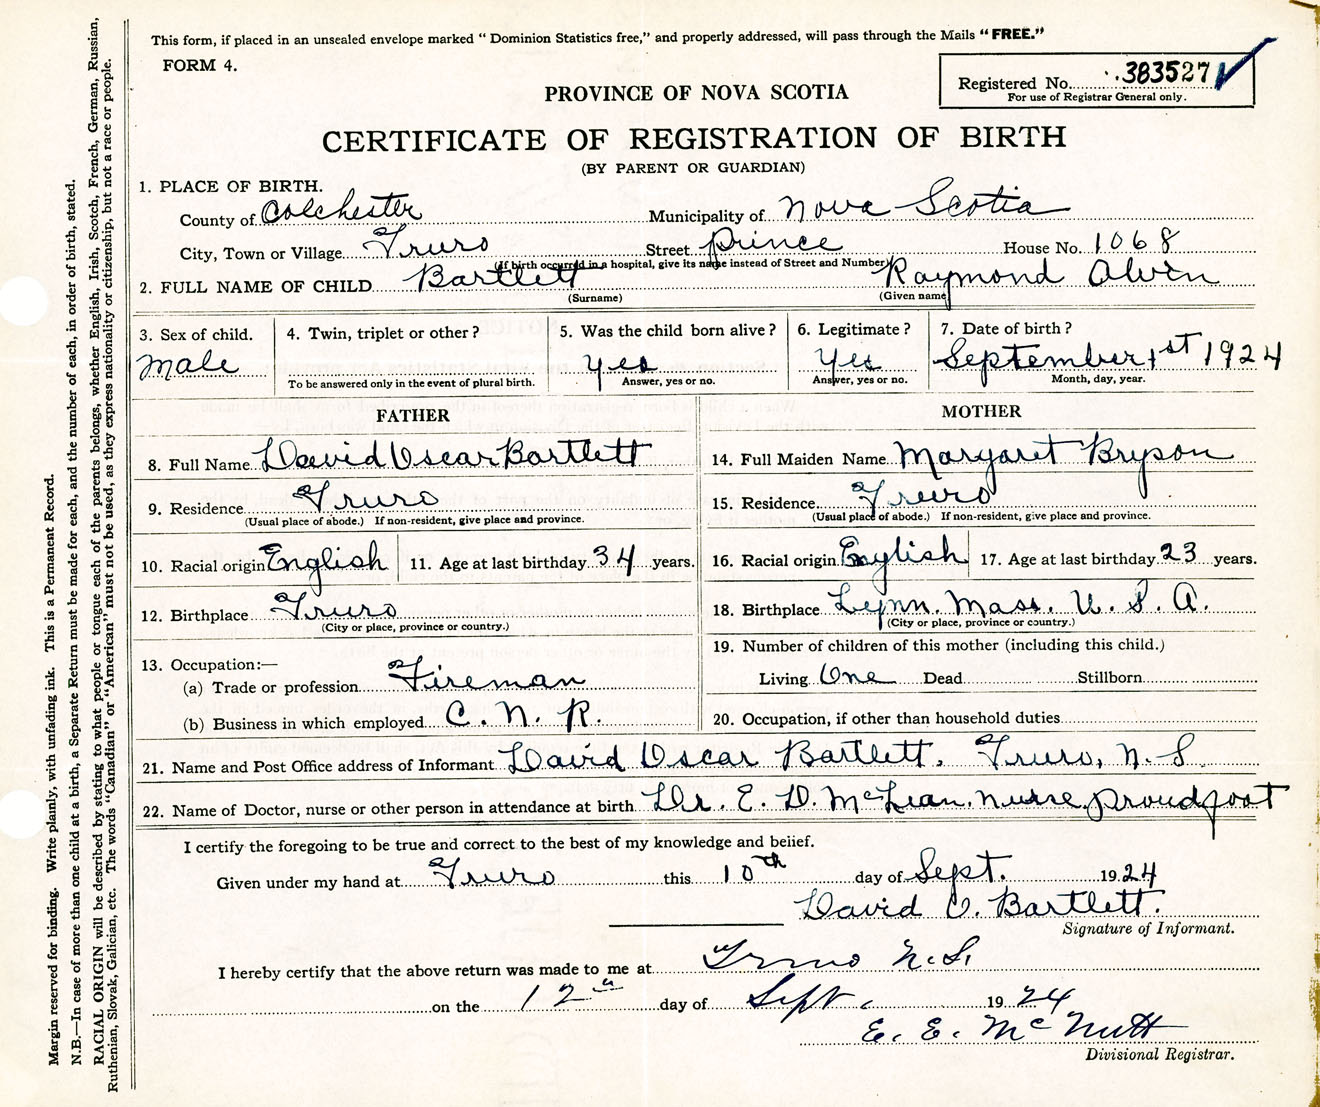 This form, if placed in an unsealed envelope marked " Dominion Statistics free," and properly addressed, will pass through the Mails " FREE."
FORM 4.
Registered No. 383527
For use of Registrar General only.
PROVINCE OF NOVA SCOTIA
CERTIFICATE OF REGISTRATION OF BIRTH
(BY PARENT OR GUARDIAN)
1. PLACE OF BIRTH.
County of Colchester Municipality of Nova Scotia
City, Town or Village Truro Street Prince House No. 1068
(If birth occurred in a hospital, give its name instead of Street and Number)
2. FULL NAME OF CHILD Bartlett Raymond Alvin
(Surname) (Given name)
3. Sex of child. 4. Twin, triplet or other ? 5. Was the child born alive ? 6. Legitimate ? 7. Date of birth ?
Male Yes Yes September 1st 1924
To be answered only in the event of plural birth. Answer, yes or no. Answer, yes or no. Month, day, year.
FATHER MOTHER
8. Full Name David Oscar Bartlett 14. Full Maiden Name Margaret Bryson
9. Residence Truro 15. Residence Truro
(Usual place of abode.) If non-resident, give place and province. (Usual place of abode.) If non-resident, give place and province.
10. Racial origin English 11. Age at last birthday 34 years. 16. Racial origin English 17. Age at last birthday 23 years.
12. Birthplace Truro 18. Birthplace Lynn. Mass. U. S. A.
(City or place, province or country.) (City or place, province or country.)
13. Occupation:— 19. Number of children of this mother (including this child.)
(a) Trade or profession Fireman Living One Dead Stillborn
(b) Business in which employed C. N. R. 20. Occupation, if other than household duties
21. Name and Post Office address of Informant David Oscar Bartlett, Truro, N. S.
22. Name of Doctor, nurse or other person in attendance at birth Dr. E. D. McLean. Nurse Proudfoot
I certify the foregoing to be true and correct to the best of my knowledge and belief.
Given under my hand at Truro this 10th day of Sept. 1924
David O. Bartlett.
Signature of Informant.
I hereby certify that the above return was made to me at Truro N.S.
on the 12 day of Sept. 1924
E. E. McNutt
Divisional Registrar.
Margin reserved for binding. Write plainly, with unfading ink. This is a Permanent Record.
N.B.—In case of more than one child at a birth, a Separate Return must be made for each, and the number of each, in order of birth, stated.
RACIAL ORIGIN will be described by stating to what people or tongue each of the parents belongs, whether English, Irish, Scotch, French, German, Russian,
Ruthenian, Slovak, Galician, etc. The words "Canadian" or "American" must not be used, as they express nationality or citizenship, but not a race or people.